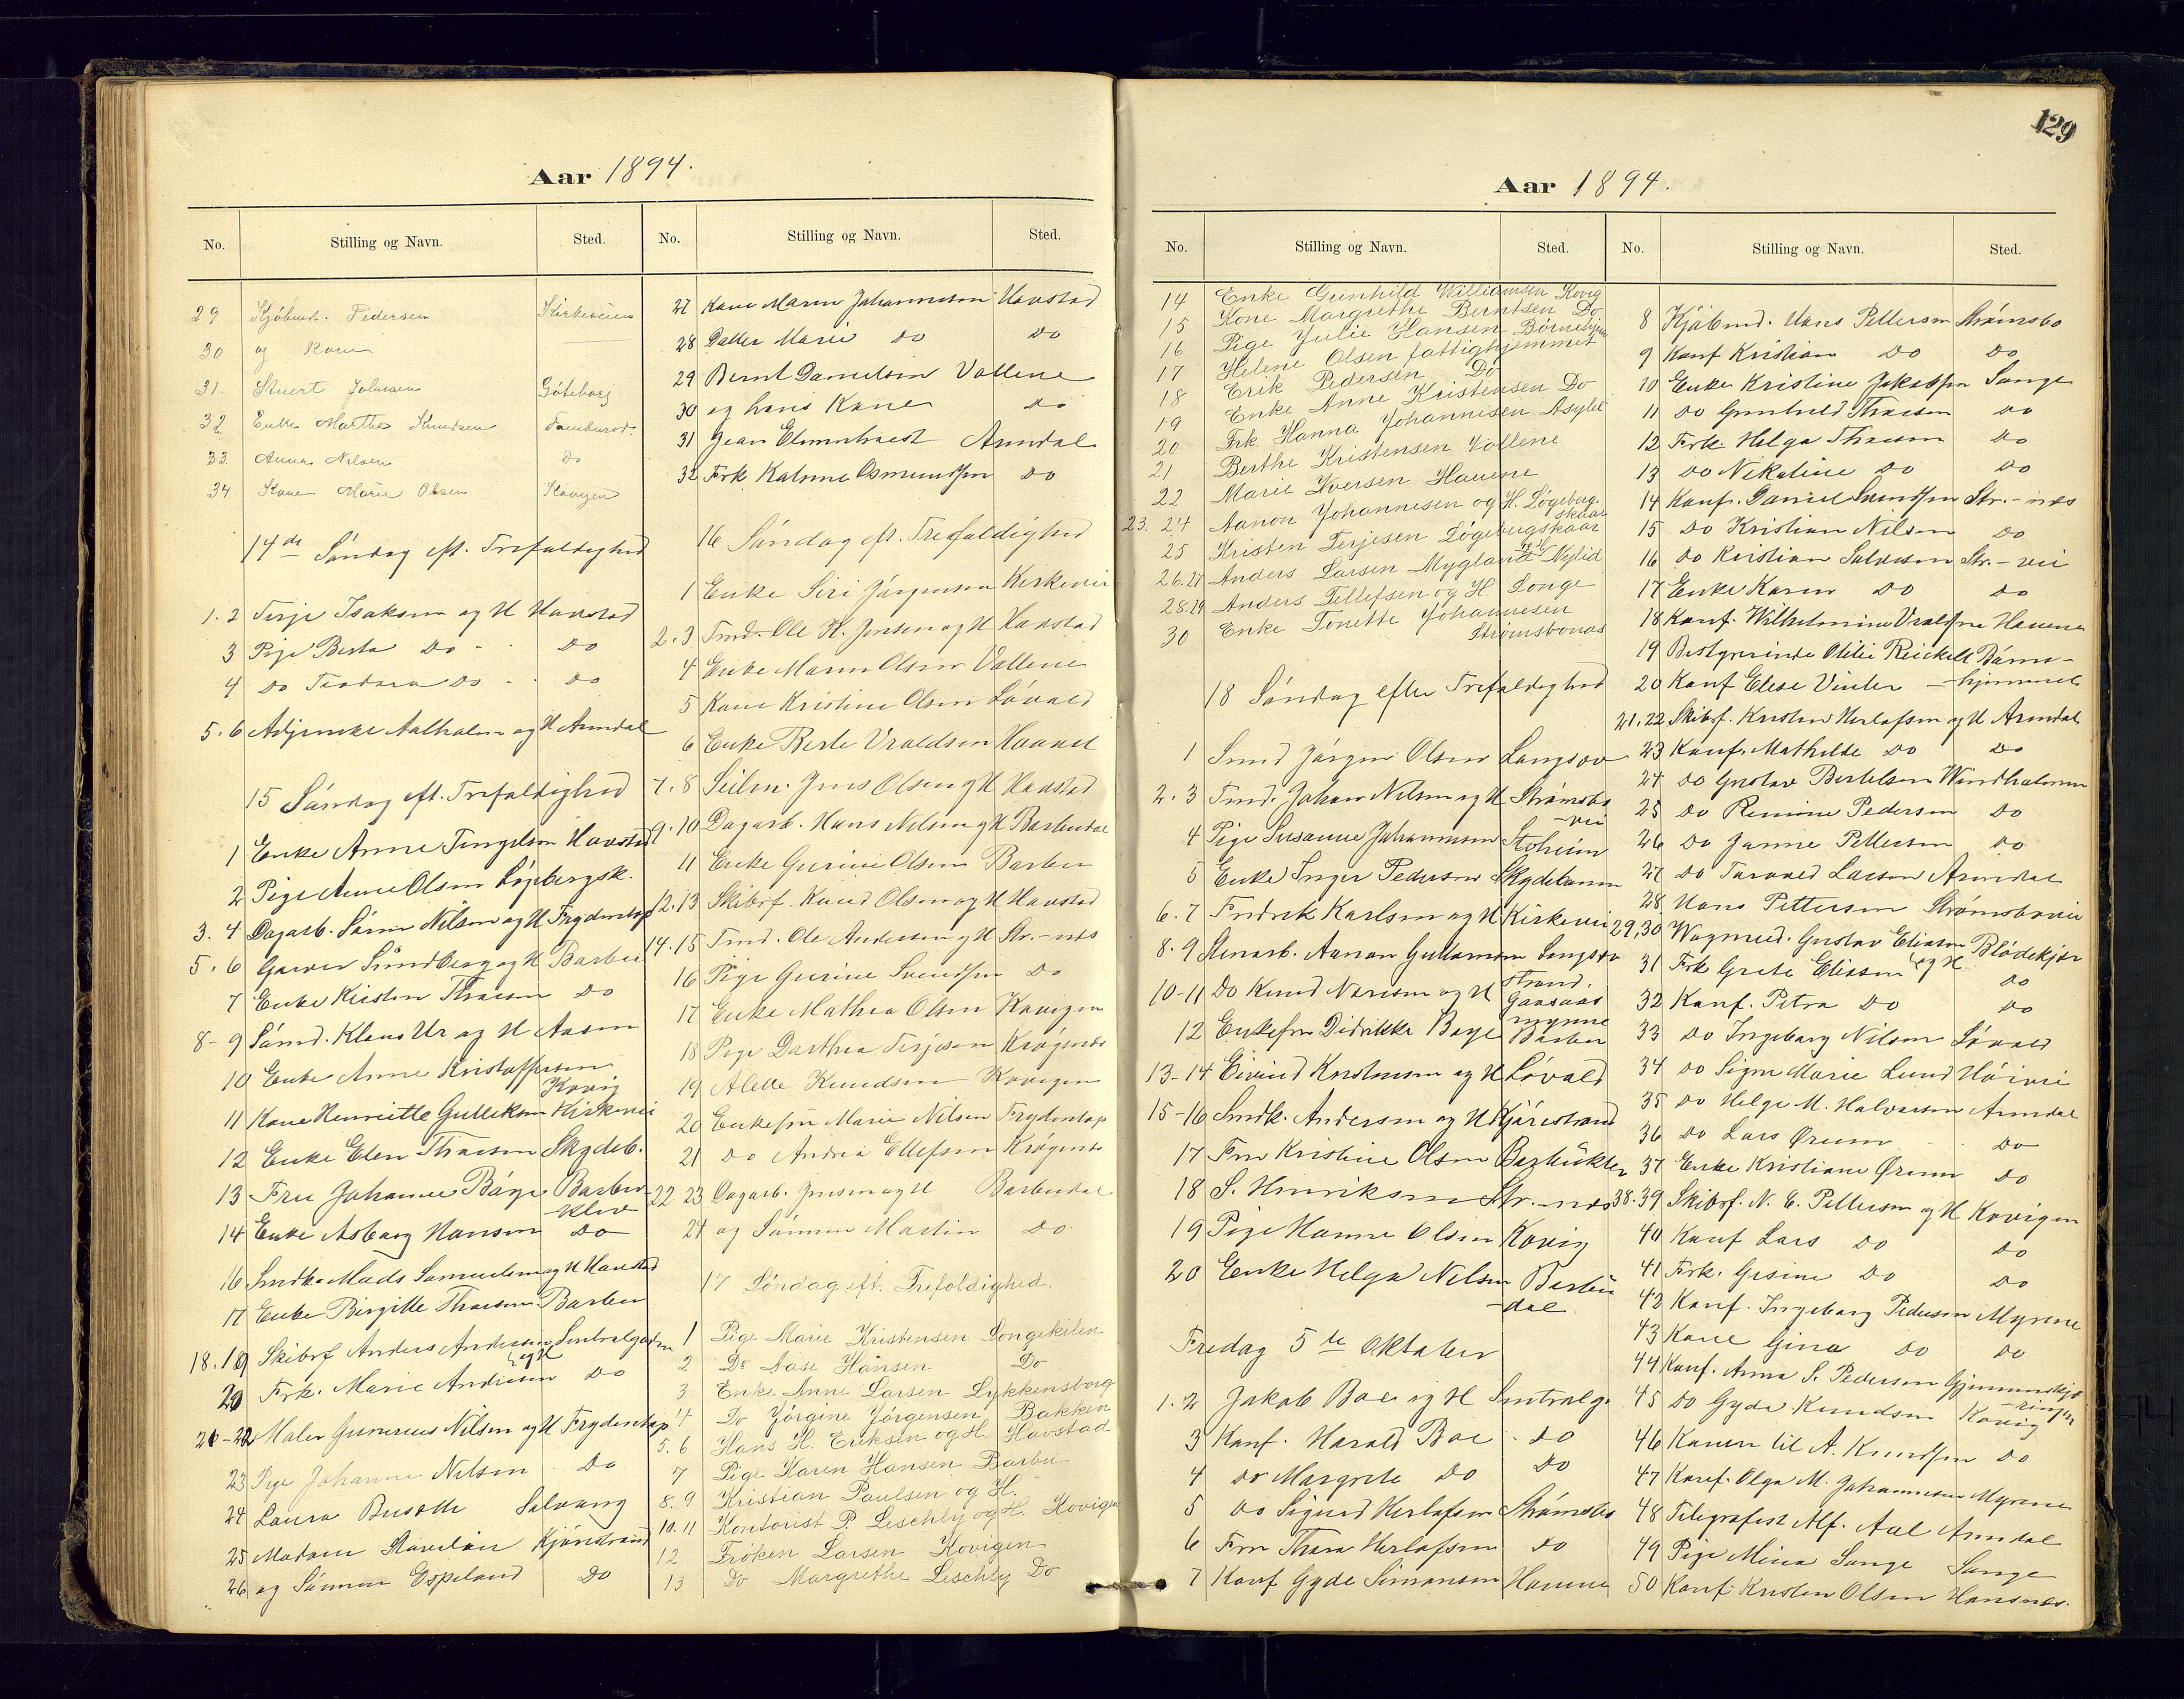 Aar 1894.
No. Stilling og Navn. Sted.
29 Kjøbmd. Pedersen Kirkeveien
30 og Kone
31. Stuert Johnsen Gøteborg
32 Enke Marthe Knudsen
33. Anna Nilsen Do
34 Kone Marie Olsen Kovigen
14de Søndag eft. Trefoldighed
1.2 Terje Isaksen og H Havstad
3 Pige Berta Do Do
4 Do Do Do
5.6 Adjunkt Aalholm og H Arendal
15 Søndag eft. Trefoldighed
1 Enke Anne Tengelsen Havstad
2 Pige Anne Olsen Løgebergsk.
3.4 Dagarb. Søren Nilsen og H Frydentop
5.6 Garver Sundberg og H Barbu
7 Enke Kirsten Thraesen Do
8-9 Sømd. Klaus Ur og H Aasen
10 Enke Anne Kristoffersen Kovig
11 Kone Henriette Gulliksen Kirkevei
12 Enke Elen Thraesen Skydeb.
13 Fru Johanne Bøye Barbu
klev
14 Enke Asborg Hansen Do
16 Smdk. Mads Samuelsen og H Havstad
17 Enke Birgitte Thraesen Barbu
18.19 Skibsf Anders Andersen og H Sentralgaden
20 Frk. Marie Andersen Do
21-22 Maler Gunerius Nilsen og H Frydentop
23 Pige Johanne Nilsen Do
24 Laura Salvang
25 Madam Kjørestrand
26 og Sønnen Espeland Do
No. Stilling og Navn. Sted.
27 Kone Maren Johannesen Havstad
28 Datter Marie Do Do
29 Bernt Danielsen Vollene
30 og hans Kone Do
31 Jean Arendal
32 Frk Kathrine Osmundsen Do
16 Søndag eft. Trefoldighed
1 Enke Siri Jørgensen Kirkevei
2.3 Tmd. Ole K. Jensen og H Havstad
4 Enke Maren Olsen Vollene
5 Kone Kristine Olsen Løvold
6 Enke Berte Vraldsen Havnen
7.8 Seilm. Jens Olsen og H Havstad
9.10 Dagarb. Hans Nilsen og H Barbudal
11 Enke Gurine Olsen Barbu
12.13 Skibsf. Knud Olsen og H Havstad
14.15 Tmd. Ole Andersen og H Str.-nes
16 Pige Gurine Svendsen Do
17 Enke Mathea Olsen Kovigen
18 Pige Dorthea Terjesen Krøgenes
19 Alette Knudsen Kovigen
20 Enkefru Marie Nilsen Frydentop
21 Do Andrea Ellefsen Krøgenes
22.23 Dagarb. Jensen og H Barbudal
24 og Sønnen Martin Do
17 Søndag eft. Trefoldighed.
1 Pige Marie Kristensen Songekilen
2 Do Aase Hansen Do
3 Enke Anne Larsen Lykkensborg
4 Do Jørgine Jørgensen Bakken
5.6 Hans H. Eriksen og H. Havstad
7 Pige Karen Hansen Barbu
8.9 Kristian Paulsen og H.
10.11 Kontorist P. Leschly og H. Kovigen
12 Frøken Larsen Kovigen
13 Do Margrethe Leschly Do
129
Aar 1894.
No. Stilling og Navn. Sted.
14 Enke Gunhild Williamsen Kovig
15 Kone Margrethe Berntsen Do
16 Pige Julie Hansen Børnehjem
17 Helene Olsen fattighjemmet
18 Erik Pedersen Do
19 Enke Anne Kristensen Do
20 Frk. Hanna Johannesen Asylet
21 Berthe Kristensen Vollene
22 Marie Iversen Havene
23.24 Aanon Johannesen og H. Løgeberg-
skaar
25 Kristen Terjesen Løgebergskaar
26.27 Anders Larsen Mygland og H Nylid
28.29 Anders Tellefsen og H. Songe
30 Enke Tonette Johannesen
Strømsbonæs
18 Søndag efter Trefoldighed
1 Smed Jørgen Olsen Langsæv
2.3 Tmd. Johan Nilsen og H Strømsbo
-vei
4 Pige Susanne Johannesen Stoheim
5 Enke Inger Pedersen Skydebanen
6.7 Fredrik Karlsen og H Kirkevei
8.9 Stenarb. Aanon Gullormsen Langsæv
10-11 Do Knud Naresen og H Strand.
Gaasaas
12 Enkefru Didrikke Boye myrene
Barbu
13-14 Eivind Kristensen og H Løvold
15-16 Smdk. Andersen og H Kjørestrand
17 Fru Kristine Olsen Barbukten
18 S. Henriksen Str.-nes
19 Pige Hanne Olsen Kovig
20 Enke Helga Nilsen Barbu
-dal
Fredag 5te Oktober
1.2 Jakob Boe og H Sentralg.
3 Konf. Harald Boe Do
4 Do Margrete Do Do
5 Do Sigurd Herlofsen Strømsbo
6 Fru Thora Herlofsen Do
7 Konf Gyda Simonsen Havene
No. Stilling og Navn. Sted.
8 Kjøbmd. Hans Pettersen Strømsbo
9 Konf Kristian Do Do
10 Enke Kristine Jakobsen Songe
11 Do Gunhild Thraesen Do
12 Frk. Helga Thraesen Do
13 Do Nikoline Do Do
14 Konf. Daniel Svendsen Str.-nes
15 Do Kristian Nilsen Do
16 Do Kristian Salvesen Str.-vei
17 Enke Karen Do Do
18 Konf. Wilhelmine Vraldsen Havene
19 Bestyrerinde Otilie Reickelt Børne-
20 Konf Elise Vinter -hjemmet
21.22 Skibsf. Kristen Herlofsen og H Arendal
23 Konf. Mathilde Do Do
24 Do Gustav Bertelsen Windholmen
25 Do Remine Pedersen Do
26 Do Janne Pettersen Do
27 Do Torvald Larsen Arendal
28 Hans Pettersen Strømsbovei
29.30 Wagmed. Gustav Eliason og H Blødekjær
31 Frk Grete Eliason Do
32 Konf. Petra Do Do
33 Do Ingeborg Nilsen Løvold
34 Do Signe Marie Lund Høivei
35 Do Helge M. Halvorsen Arendal
36 Do Lars Ørum Do
37 Enke Kristiane Ørum Do
38.39 Skibsf. N. C. Pettersen og H Kovigen
40 Konf Lars Do Do
41 Frk. Gesine Do Do
42 Konf. Ingeborg Pedersen Myrene
43 Kone Gina Do Do
44 Konf. Anna S. Pedersen
45 Do Gyda Knudsen Kovig
46 Konen til A. Knudsen Do
47 Konf. Olga M. Johannesen Myrene
48 Telegrafist Alf. Aal Arendal
49 Pige Mina Songe Songe
50 Konf. Kristen Olsen Hansnes.